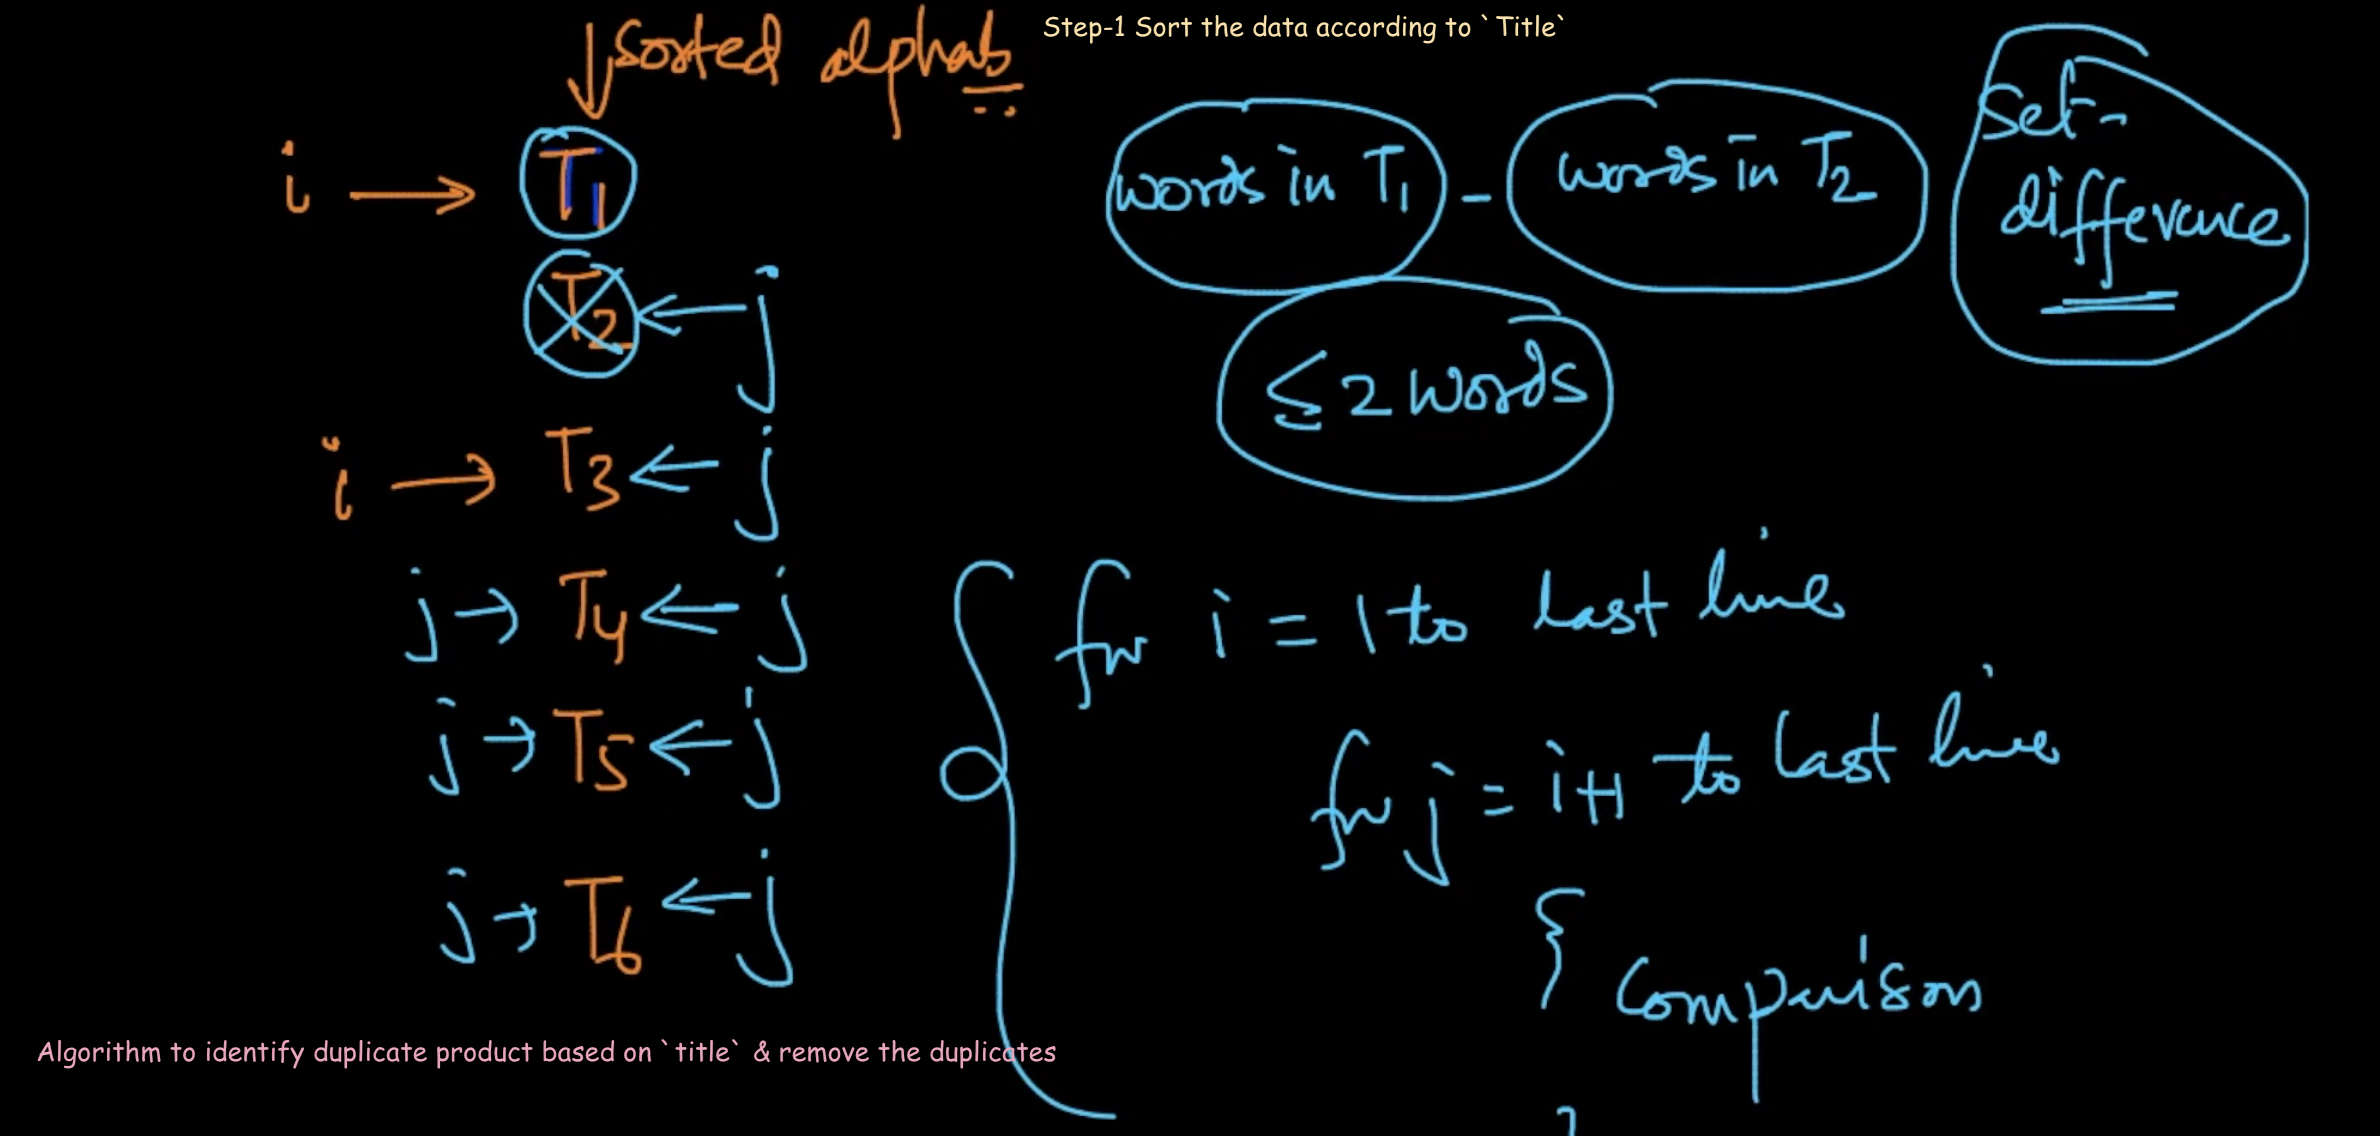 Step-1 Sort the data according to `Title`
↓ sorted alphab
i → T1
T2 ← j
i → T3 ← j
j → T4 ← j
j → T5 ← j
j → T6 ← j
words in T1 - words in T2
set-
difference
≤ 2 words
for i = 1 to last line
for j = i+1 to last line
{ comparison
}
Algorithm to identify duplicate product based on `title` & remove the duplicates